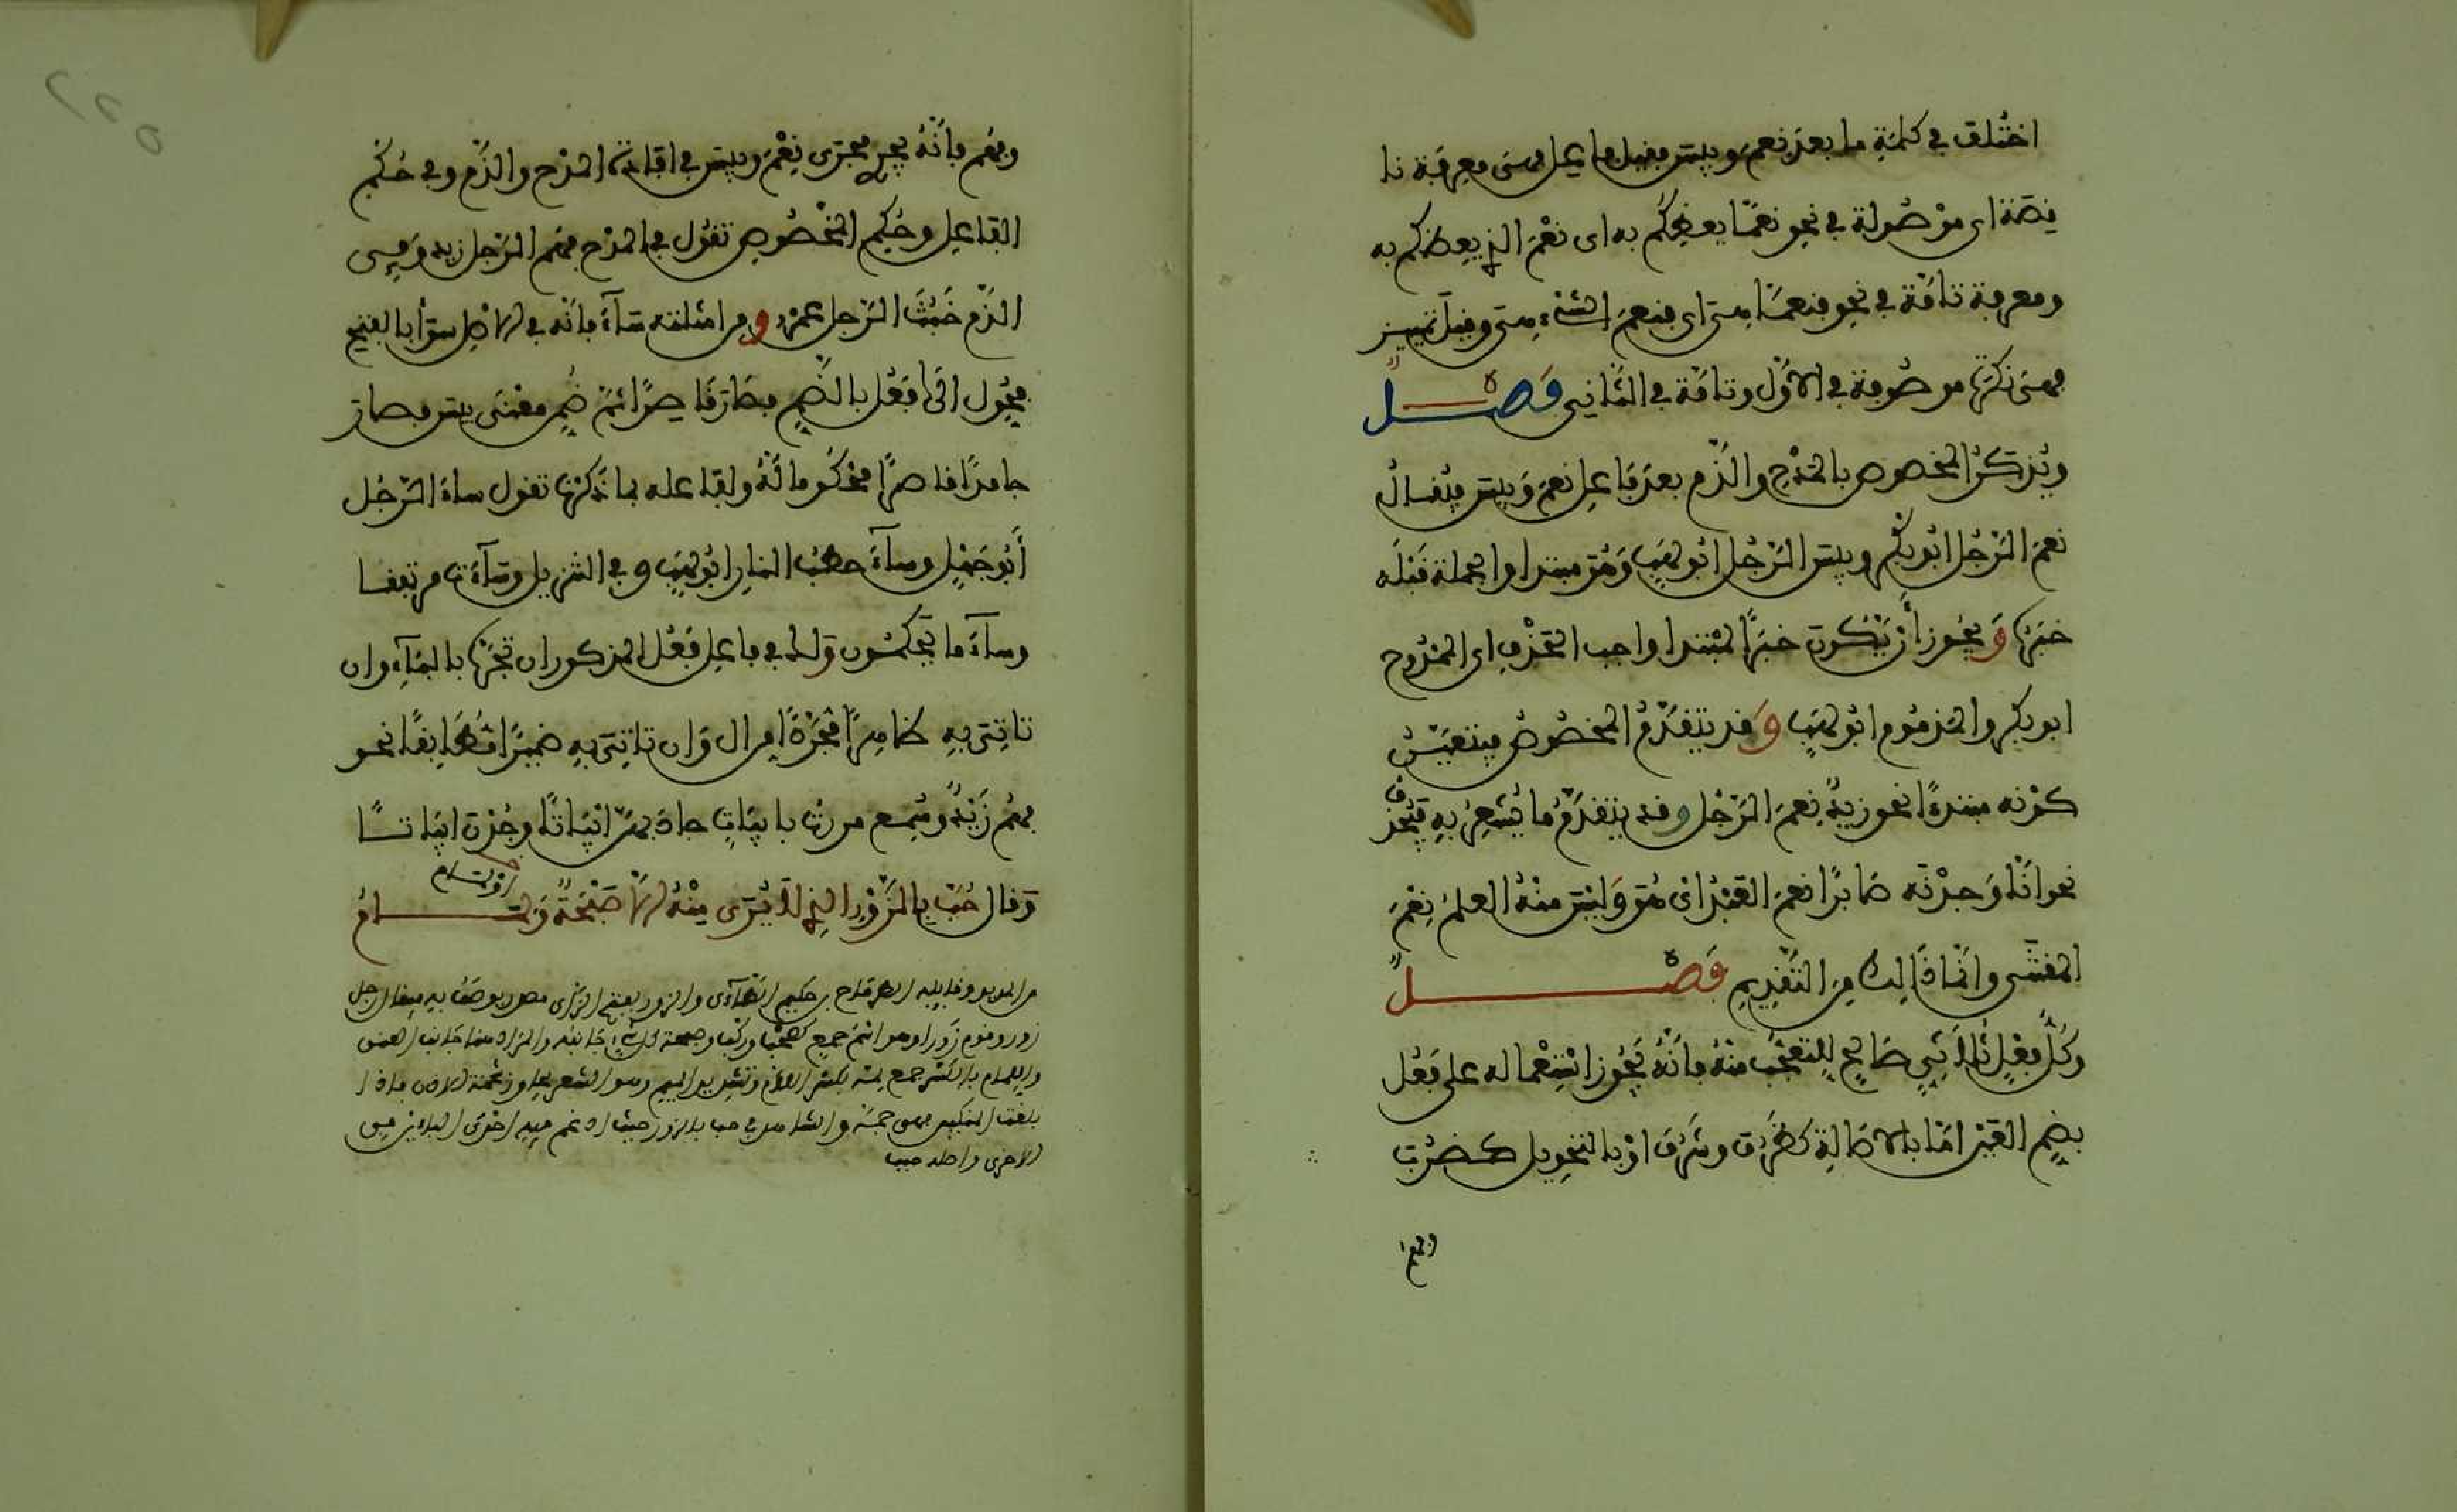 اختُلف في كلمة ما بعد نعم وبيس فقيل ما فاعل فهي معرفة نا
قصة اي موْصُولة في نحو نعمّا يعظكم به اى نعْمَ الذي يعظكم به
ومعرفة تامّة في نحو فنعمّا هي اى فنعم الشيء هي وقيل تمييز
فهي نكرة موصُوفة في الاوّل وتامّة في الثّاني فَصْلٌ
ويُذكرُ المخصوص بالمدْح والذّم بعد فاعل نعمَ وبيس فيُقالُ
نعمَ الرّجُل ابُو بكْرٍ وبيس الرّجُل ابُو لهبٍ وهُو مبتدا والجملة قبْلَه
خبرُها وَيجُوز أَنْ يّكُون خبرًا لمبْتدا واجب الحذْفِ اى الممْدُوح
ابو بكرٍ والمذمُوم ابُو لهبٍ وَقد يتقدّمُ المخصُوصُ فيتعيّنُ
كوْنه مبتدءًا نحو زيدٌ نِعمَ الرّجُل وقد يتقدّمُ ما يُشْعِرُ بهِ فيُحْذفُ
نحو انّا وَجدْنَه صَابرًا نعمَ العَبْدُ اىْ هُو وَليْس منْهُ العلمُ نِعْمَ
المقتنى وانّما ذَالك مِنَ التّقْدِيمِ فَصْلٌ
وكلّ فِعْلٍ ثُلاثِيٍّ صَالحٍ للتّعجّب منْهُ فانّهُ يَجُوز اسْتِعْماله على فَعُل
بضمِ العَيْن امّا بالاصَالة كظَرُف وشرُف اوْ بالتحْويل كضرُب
وفهم
وفهُم فانّهُ يجرى مجرَى نِعْمَ وبيس في افادة المدْح والذّم وفي حُكْم
الفاعِل وحُكم المخْصُوص تقُول في المدْح فهُم الرّجل زيد وَفي
الذّم خَبُثَ الرّجل عمْرٌو ومن امثلته سَاءَ فانّه في الاصْل سوَأ بالفتح
فحُوّل الَى فَعُل بالضّم فصَار قَاصِرًا ثمّ ضُمِّن معْنَى بيس فصار
جامدًا قاصرًا محْكُومًا لهُ ولفاعله بما ذَكرْنا تقول ساءَ الرّجُل
أَبُو جَهْلٍ وساءَ حطَبُ النارِ ابُو لهبٍ وفي التنزيل وسَاءَت مرتفقا
وساءَ ما يَحكمُون وَلك في فاعل فَعُل المذكور ان تجُرّه بالبَاءِ وان
تاتِيَ بهِ ظاهِرًا مُجَرّدًا مِن ال وَان تاتِيَ بهِ ضميرًا مُطَابقًا نحو
فهُم زَيْدٌ وسُمِع مررتُ بابيَاتٍ جادَ بهنّ ابْيَاتًا وجُدْن ابْيَاتًا
وَقال حُبّ بالزَّوْرِ الذِي لاَ يُرَى مِنْهُ الاَّ صَفْحَةٌ وَلِمَامُ
او لمام
من المديد وقايله الطرماح بن حكيم الطاءى والزور بفتح الزاى مصدر يوصف به فيقال رجل
زور وقوم زور او هو اسم جمع كصحب وركب وصفحة كل شيء جانبه والمراد هنا جانب العنق
واللمام بالكسر جمع لمة بكسر اللام وتشديد الميم وهو الشعر يجاوز شحمة الاذن فاذا
بلغت المنكبين فهي جمة والشاهد في حب بالزور حيث ادغم فيه احدى الباءين في
الاخرى واصله حبب